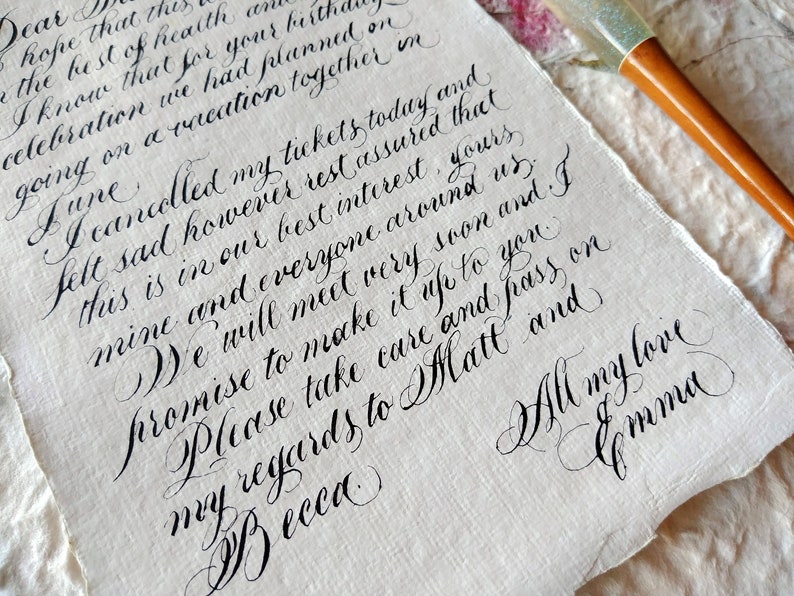 Dear
hope that this
the best of health and
I know that for your birthday
celebration we had planned on
going on a vacation together in
June
I cancolled my tickets today and
felt sad however rest assured that
this is in our best interest, yours
mine and everyone around us.
We will meet very soon and I
promise to make it up to you.
Please take care and pass on
my regards to Matt and
Becca.
All my love
Emma